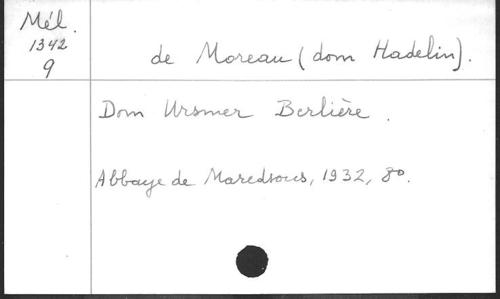 Mél.
1342
9
de Moreau (dom Hadelin).
Dom Ursmer Berlière.
Abbaye de Maredsous, 1932, 8o.